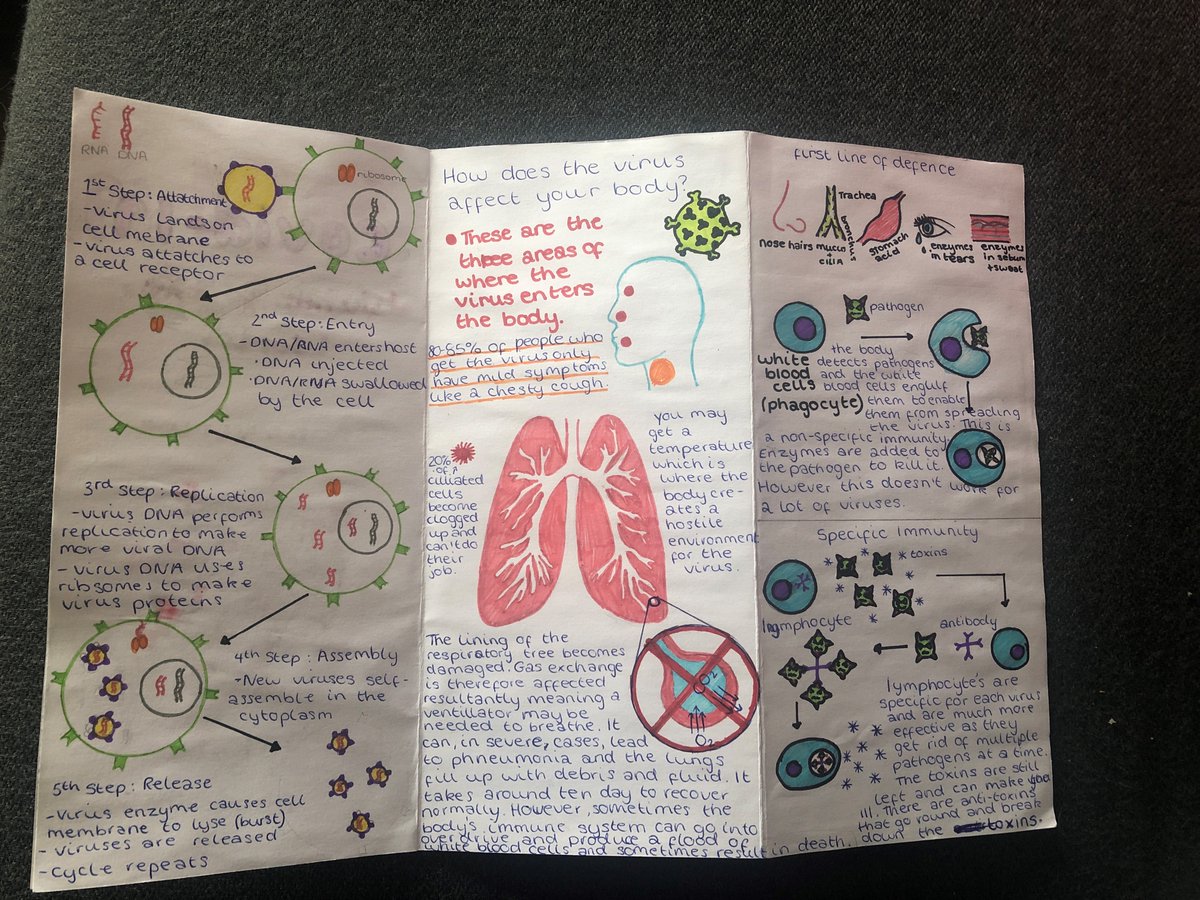 RNA DNA
ribosome
1st Step: Attatchment
- Virus lands on
cell mebrane
- Virus attatches to
a cell receptor
2nd Step: Entry
- DNA/RNA enters host
· DNA injected
· DNA/RNA swallowed
by the cell
3rd Step: Replication
- virus DNA performs
replication to make
more viral DNA
- Virus DNA uses
ribsomes to make
virus proteins
4th Step: Assembly
- New viruses self-
assemble in the
cytoplasm
5th Step: Release
- Virus enzyme causes cell
membrane to lyse (burst)
- viruses are released
- cycle repeats
How does the virus
affect your body?
• These are the
three areas of
where the
virus enters
the body.
80-85% of people who
get the virus only
have mild symptoms
like a chesty cough.
20%
of
cilliated
cells
become
clogged
up and
can't do
their
job.
you may
get a
temperature
which is
where the
body cre-
ates a
hostile
environment
for the
virus.
CO2
O2
The lining of the
respiratory tree becomes
damaged. Gas exchange
is therefore affected
resultantly meaning a
ventilator may be
needed to breathe. It
can, in severe, cases, lead
to phneumonia and the lungs
fill up with debris and fluid. It
takes around ten day to recover
normally. However, sometimes the
body's immune system can go into
overdrive and produce a flood of
white blood cells and sometimes result in death.
first line of defence
Trachea
Bronchus
nose hairs
mucus
+
CILIA
stomach
acid
enzymes
in tears
enzymes
in sebum
+ sweat
pathogen
white
blood
cells
(phagocyte)
the body
detects pathogens
and the white
blood cells engulf
them to enable
them from spreading
the virus. This is
a non-specific immunity.
Enzymes are added to
the pathogen to kill it.
However this doesn't work for
a lot of viruses.
Specific Immunity
toxins
lymphocyte
antibody
lymphocyte's are
specific for each virus
and are much more
effective as they
get rid of multiple
pathogens at a time.
The toxins are still
left and can make you
ill. There are anti-toxins
that go round and break
down the toxins.